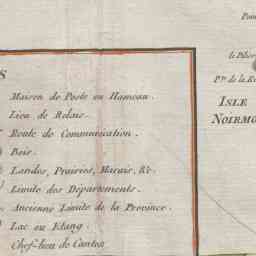 S
Maison de Poste ou Hameau.
Lieu de Relais.
Route de Communication.
Bois.
Landes, Prairies, Marais, &c.
Limite des Départemens.
Ancienne Limite de la Province.
Lac ou Etang.
Chef-lieu de Canton
le Pilier
Pte. de la
ISLE
NOIRMO